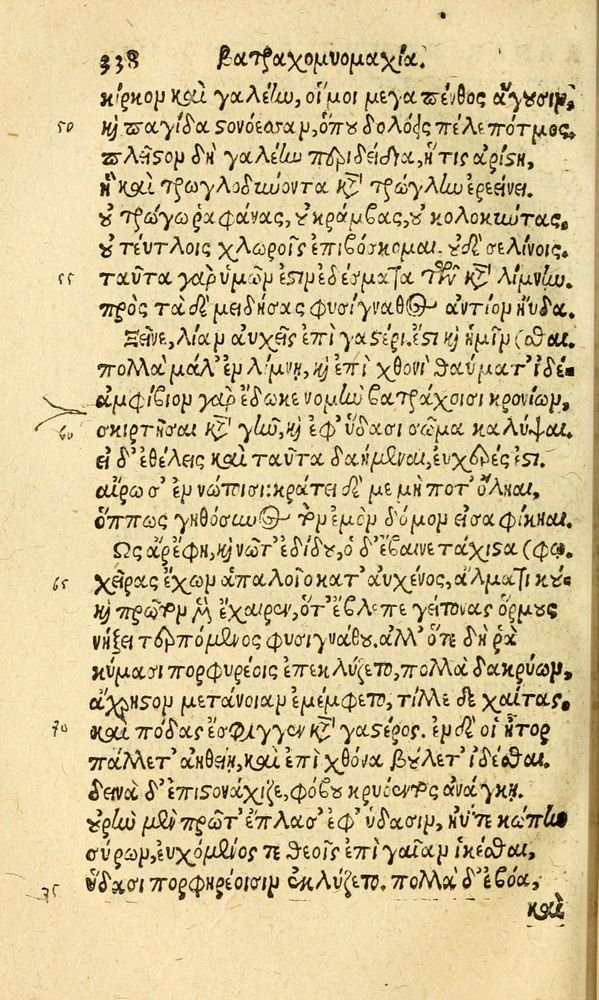 338 βατραχομυομαχία.
κίρκον καὶ γαλέην, οἵ μοι μέγα πένθος ἄγουσιν,
50 καὶ παγίδα στονόεσσαν, ὅπου δολόεις πέλε πότμος.
πλεῖστον δὴ γαλέην περιδείδια, ἥ τις ἀρίστη,
ἣ καὶ τρωγλοδύνοντα κατὰ τρώγλην ἐρεείνει.
οὐ τρώγω ῥαφάνας, οὐ κράμβας, οὐ κολοκύντας.
οὐ τεύτλοις χλωροῖς ἐπιβόσκομαι. οὐδὲ σελίνοις.
55 ταῦτα γὰρ ὑμῶν ἐστιν ἐδέσματα τῶν κατὰ λίμνην.
πρὸς τάδε μειδήσας φυσίγναθος ἀντίον ηὔδα.
Ξεῖνε, λίαν αὐχεῖς ἐπὶ γαστέρι. ἔστι καὶ ἡμῖν (σθαι.
πολλὰ μάλ' ἐν λίμνῃ, καὶ ἐπὶ χθονὶ θαύματ' ἰδέ-
ἀμφίβιον γὰρ ἔδωκε νομὴν βατράχοισι κρονίων,
60 σκιρτῆσαι κατὰ γῆν, καὶ ἐφ' ὕδασι σῶμα καλύψαι.
εἰ δ' ἐθέλεις καὶ ταῦτα δαήμεναι, εὐχερές ἐστι.
αἴρω σ' ἐν νώτοισι: κράτει δέ με μήποτ' ὄληαι,
ὅππως γηθόσυνος τὸν ἐμὸν δόμον εἰσαφίκηαι.
Ὣς ἄρ' ἔφη, καὶ νῶτ' ἐδίδου, ὁ δ' ἔβαινε τάχιστα (φω.
65 χεῖρας ἔχων ἁπαλοῖο κατ' αὐχένος, ἅλματι κού-
καὶ πρῶτον μὲν ἔχαιρεν, ὅτ' ἔβλεπε γείτονας ὅρμους
νήξει τερπόμενος φυσιγνάθου. ἀλλ' ὅτε δή ῥα
κύμασι πορφυρέοις ἐπεκλύζετο, πολλὰ δακρύων,
ἄχρηστον μετάνοιαν ἐμέμφετο, τίλλε δὲ χαίτας.
70 καὶ πόδας ἔσφιγγεν κατὰ γαστέρος. ἐν δέ οἱ ἦτορ
πάλλετ' ἀηθείῃ, καὶ ἐπὶ χθόνα βούλετ' ἰδέσθαι.
δεινὰ δ' ἐπιστονάχιζε, φόβου κρυόεντος ἀνάγκῃ.
οὐρὴν μὲν πρῶτ' ἔπλασ' ἐφ' ὕδασιν, ἠΰτε κώπην
σύρων, εὐχόμενός τε θεοῖς ἐπὶ γαῖαν ἱκέσθαι,
75 ὕδασι πορφηρέοισιν ἐκλύζετο. πολλὰ δ' ἐβόα,
καὶ